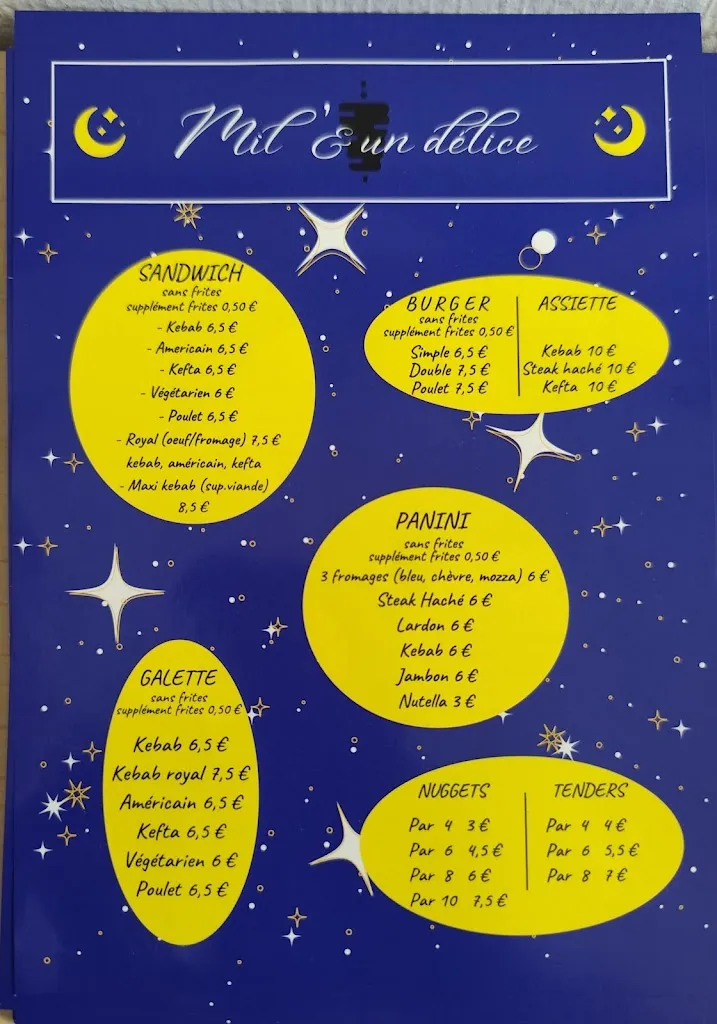 Mil '& un délice
SANDWICH
sans frites
supplément frites 0,50 €
- Kebab 6,5 €
- Americain 6,5 €
- Kefta 6,5 €
- Végétarien 6 €
- Poulet 6,5 €
- Royal (oeuf/fromage) 7,5 €
kebab, américain, kefta
- Maxi kebab (sup.viande)
8,5 €
BURGER
sans frites
supplément frites 0,50 €
Simple 6,5 €
Double 7,5 €
Poulet 7,5 €
ASSIETTE
Kebab 10 €
Steak haché 10 €
Kefta 10 €
PANINI
sans frites
supplément frites 0,50 €
3 fromages (bleu, chèvre, mozza) 6 €
Steak Haché 6 €
Lardon 6 €
Kebab 6 €
Jambon 6 €
Nutella 3 €
GALETTE
sans frites
supplément frites 0,50 €
Kebab 6,5 €
Kebab royal 7,5 €
Américain 6,5 €
Kefta 6,5 €
Végétarien 6 €
Poulet 6,5 €
NUGGETS
Par 4 3 €
Par 6 4,5 €
Par 8 6 €
Par 10 7,5 €
TENDERS
Par 4 4 €
Par 6 5,5 €
Par 8 7 €